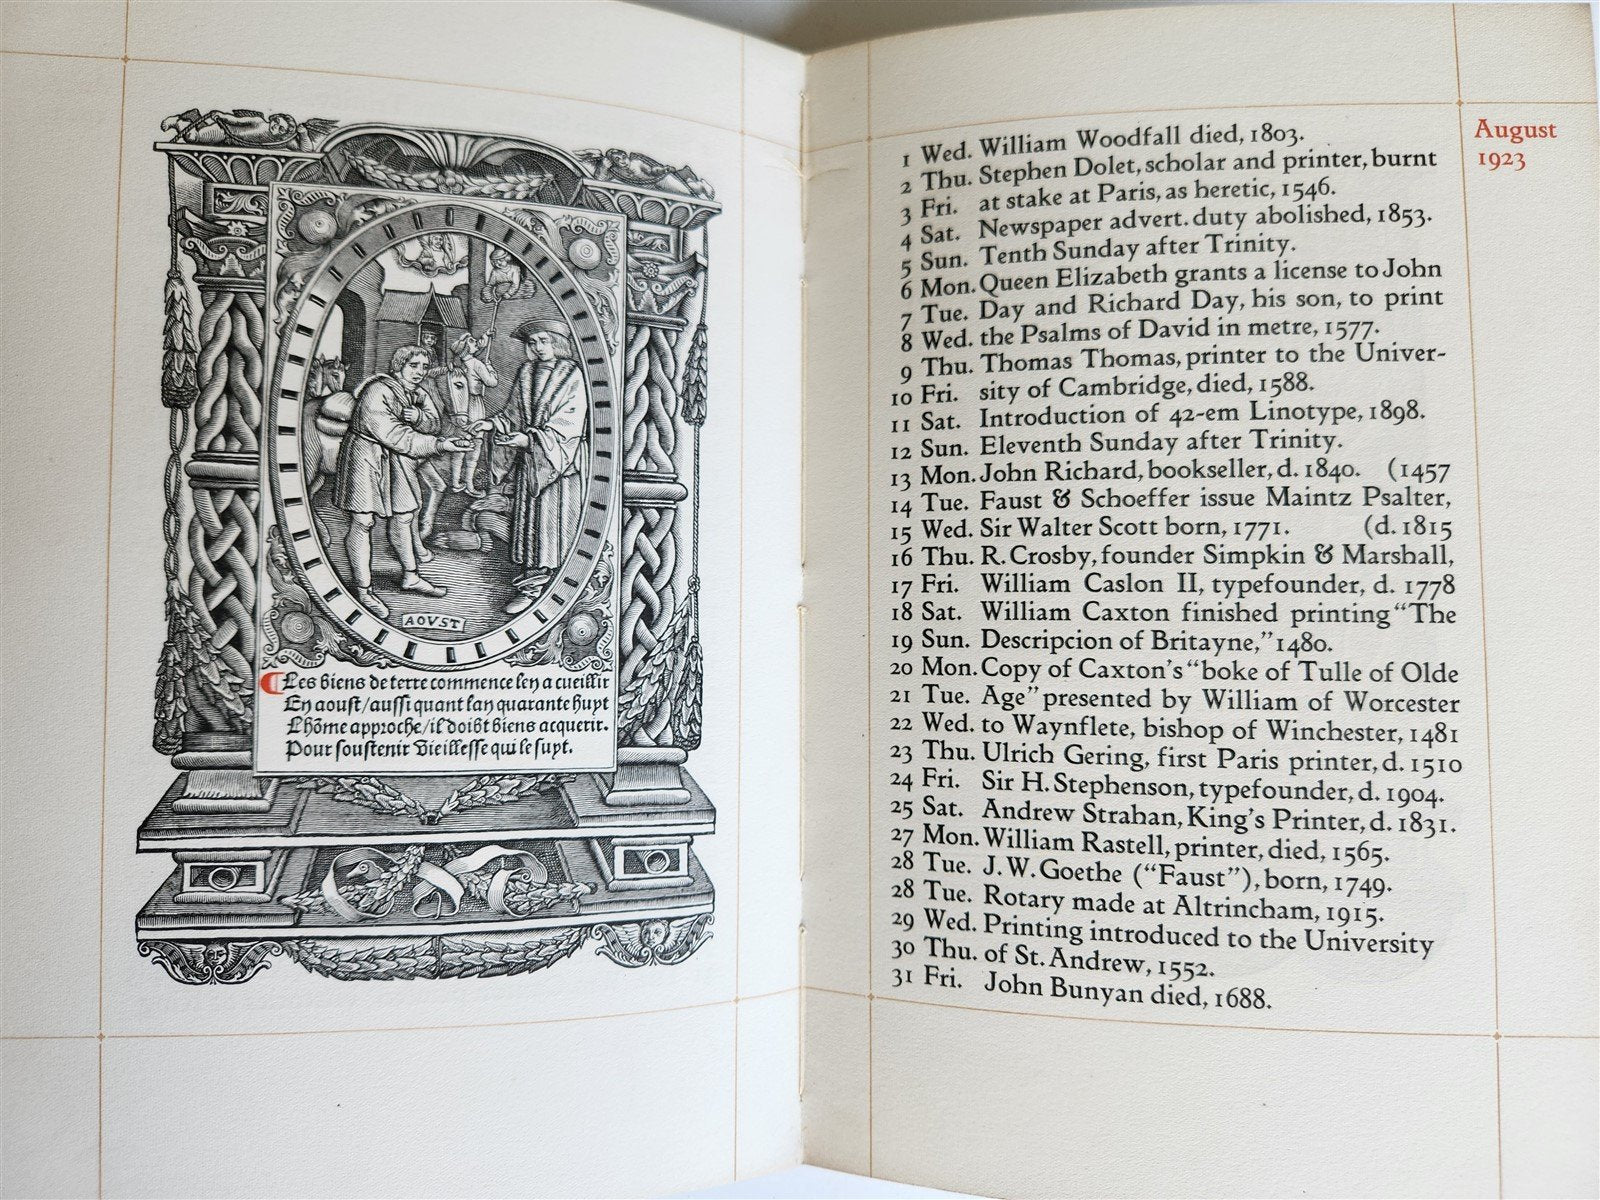 AOVST
Les biens de terre commence len a cueillir
En aoust/aussi quant lan quarante huyt
Lhõme approche/il doibt biens acquerir.
Pour soustenir vieillesse qui le suyt.
August
1923
1 Wed. William Woodfall died, 1803.
2 Thu. Stephen Dolet, scholar and printer, burnt
3 Fri. at stake at Paris, as heretic, 1546.
4 Sat. Newspaper advert. duty abolished, 1853.
5 Sun. Tenth Sunday after Trinity.
6 Mon. Queen Elizabeth grants a license to John
7 Tue. Day and Richard Day, his son, to print
8 Wed. the Psalms of David in metre, 1577.
9 Thu. Thomas Thomas, printer to the Univer-
10 Fri. sity of Cambridge, died, 1588.
11 Sat. Introduction of 42-em Linotype, 1898.
12 Sun. Eleventh Sunday after Trinity.
13 Mon. John Richard, bookseller, d. 1840. (1457
14 Tue. Faust & Schoeffer issue Maintz Psalter,
15 Wed. Sir Walter Scott born, 1771. (d. 1815
16 Thu. R. Crosby, founder Simpkin & Marshall,
17 Fri. William Caslon II, typefounder, d. 1778
18 Sat. William Caxton finished printing "The
19 Sun. Descripcion of Britayne," 1480.
20 Mon. Copy of Caxton's "boke of Tulle of Olde
21 Tue. Age" presented by William of Worcester
22 Wed. to Waynflete, bishop of Winchester, 1481
23 Thu. Ulrich Gering, first Paris printer, d. 1510
24 Fri. Sir H. Stephenson, typefounder, d. 1904.
25 Sat. Andrew Strahan, King's Printer, d. 1831.
27 Mon. William Rastell, printer, died, 1565.
28 Tue. J. W. Goethe ("Faust"), born, 1749.
28 Tue. Rotary made at Altrincham, 1915.
29 Wed. Printing introduced to the University
30 Thu. of St. Andrew, 1552.
31 Fri. John Bunyan died, 1688.